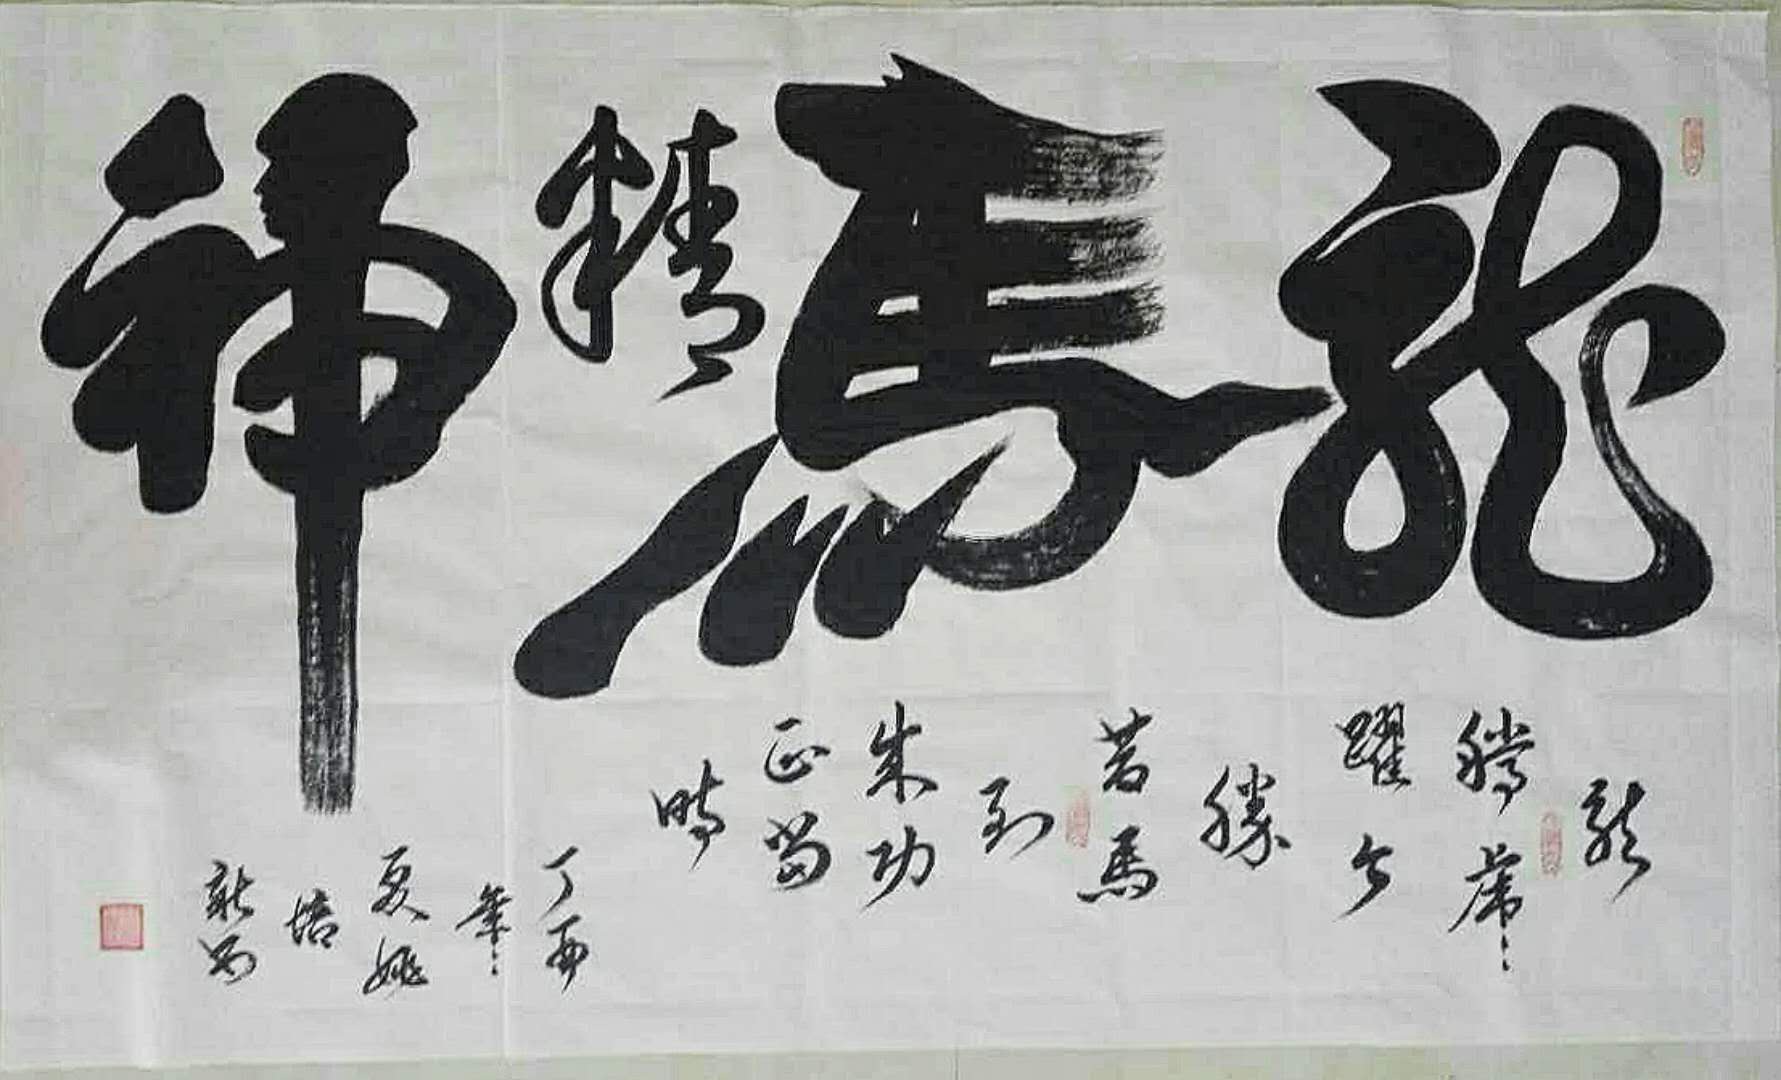 龍馬精神
龍
騰虎
躍今
勝
昔馬
到
成功
正當
時
丁酉
年
夏姚
培